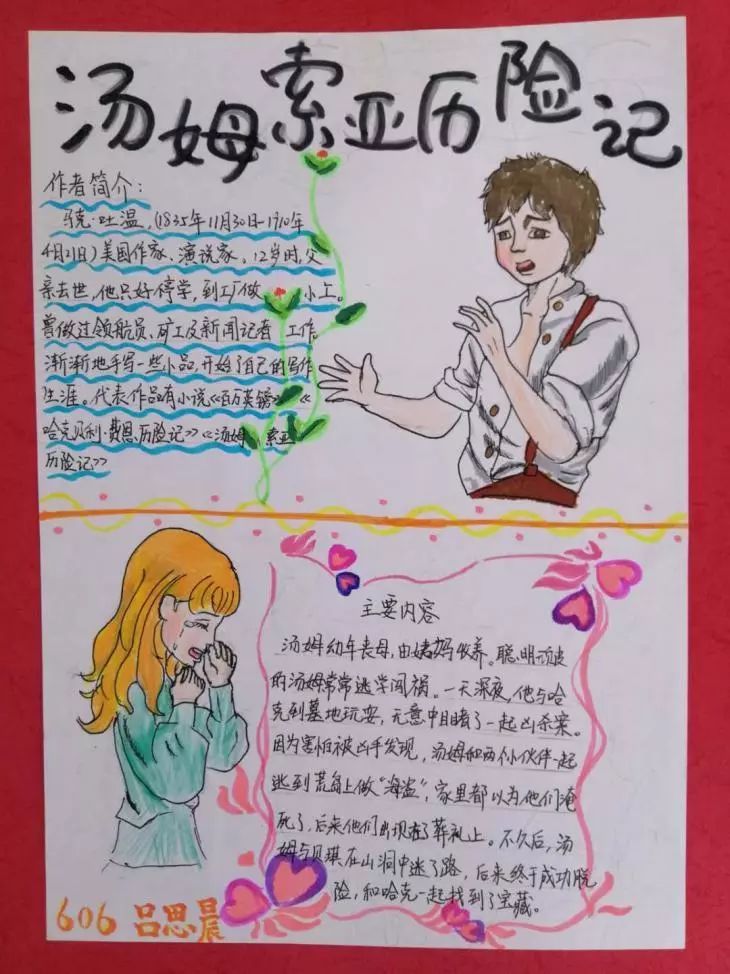 汤姆索亚历险记
作者简介：
马克·吐温，(1835年11月30日-1910年
4月21日)美国作家、演说家，12岁时，父
亲去世，他只好停学，到工厂做 小工。
曾做过领航员、矿工及新闻记者 工作。
渐渐地手写一些小品，开始了自己的写作
生涯。代表作品有小说《百万英镑》《
哈克贝利·费恩历险记》《汤姆 索亚
历险记》
主要内容
汤姆幼年丧母，由姨妈收养。聪明顽皮
的汤姆常常逃学闯祸。一天深夜，他与哈
克到墓地玩耍，无意中目睹了一起凶杀案。
因为害怕被凶手发现，汤姆和两个小伙伴一起
逃到荒岛上做“海盗”，家里都以为他们淹
死了，后来他们出现在了葬礼上。不久后，汤
姆与贝琪在山洞中迷了路，后来终于成功脱
险，和哈克一起找到了宝藏。
606 吕思晨